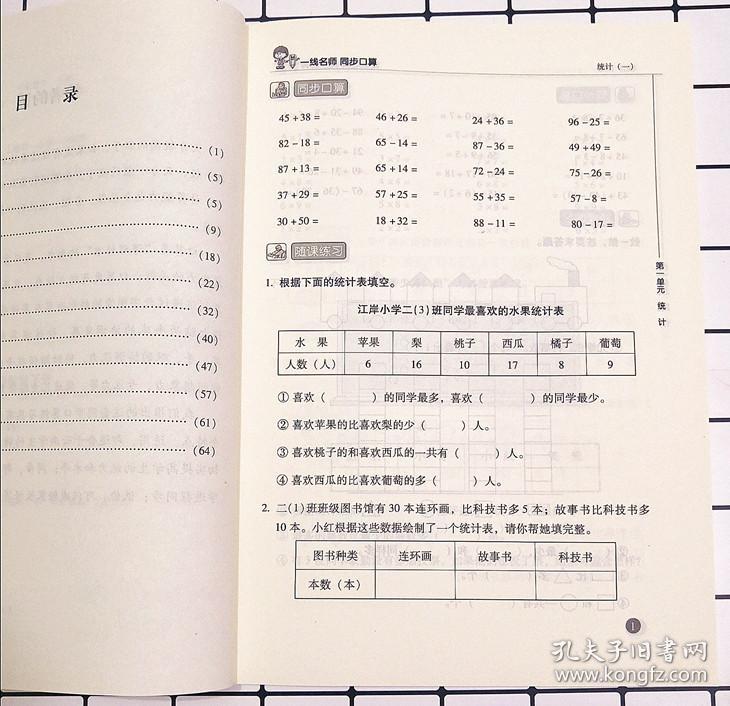 目 录
(1)
(5)
(5)
(9)
(18)
(22)
(32)
(40)
(47)
(57)
(61)
(64)
一线名师 同步口算
统计（一）
同步口算
45+38= 46+26= 24+36= 96-25=
82-18= 65-14= 87-36= 49+49=
87+13= 65+14= 72-24= 75-26=
37+29= 57+25= 55+35= 57-8=
30+50= 18+32= 88-11= 80-17=
随课练习
1. 根据下面的统计表填空。
江岸小学二(3)班同学最喜欢的水果统计表
水 果 苹果 梨 桃子 西瓜 橘子 葡萄
人数（人） 6 16 10 17 8 9
① 喜欢（ ）的同学最多，喜欢（ ）的同学最少。
② 喜欢苹果的比喜欢梨的少（ ）人。
③ 喜欢桃子的和喜欢西瓜的一共有（ ）人。
④ 喜欢西瓜的比喜欢葡萄的多（ ）人。
2. 二(1)班班级图书馆有30本连环画，比科技书多5本；故事书比科技书多
10本。小红根据这些数据绘制了一个统计表，请你帮她填完整。
图书种类 连环画 故事书 科技书
本数（本）
第一单元 统计
1
孔夫子旧书网
www.kongfz.com